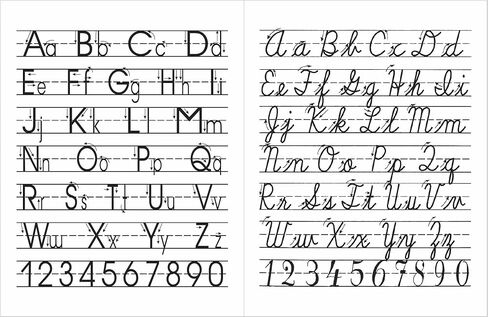 Aa Bb Cc Dd
Ee Ff Gg Hh Ii
Jj Kk Ll Mm
Nn Oo Pp Qq
Rr Ss Tt Uu Vv
Ww Xx Yy Zz
1234567890
Aa Bb Cc Dd
Ee Ff Gg Hh Ii
Jj Kk Ll Mm
Nn Oo Pp Qq
Rr Ss Tt Uu Vv
Ww Xx Yy Zz
1234567890